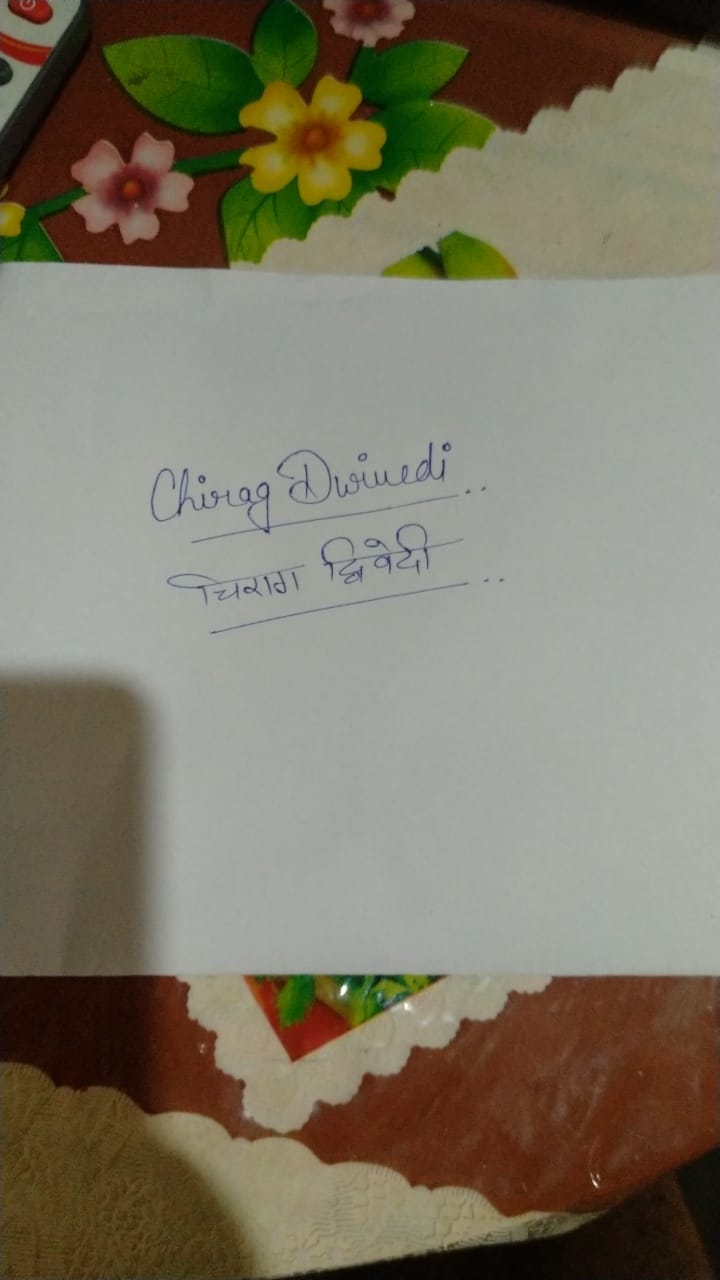 Chirag Dwivedi..
चिराग द्विवेदी..